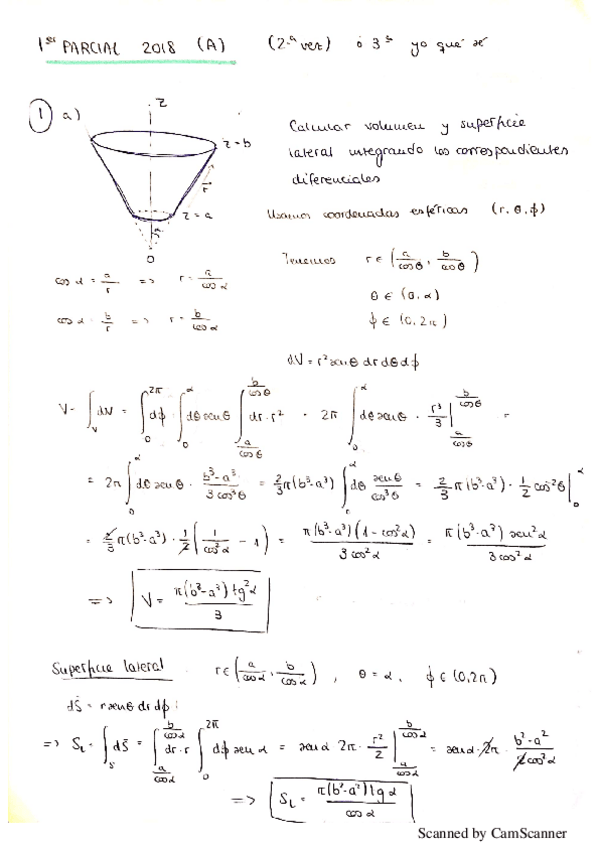 1er PARCIAL 2018 (A) (2ª vez) ó 3ª yo qué sé
1 a)
z
z=b
r
z=a
α
0
Calcular volumen y superficie
lateral integrando los correspondientes
diferenciales
Usamos coordenadas esféricas (r, θ, ϕ)
Tenemos r ∈ (a/cosθ, b/cosθ)
cos α = a/r => r = a/cos α
θ ∈ (0, α)
cos α = b/r => r = b/cos α
ϕ ∈ (0, 2π)
dV = r² senθ dr dθ dϕ
V = ∫_V dV = ∫_0^{2π} dϕ · ∫_0^α dθ senθ ∫_{a/cosθ}^{b/cosθ} dr · r² = 2π ∫_0^α dθ senθ · r³/3 |_{a/cosθ}^{b/cosθ} =
= 2π ∫_0^α dθ senθ · (b³-a³)/(3cos³θ) = 2/3 π(b³-a³) ∫_0^α dθ senθ/cos³θ = 2/3 π(b³-a³) · 1/2 cos^-2 θ |_0^α
= 2/3 π(b³-a³) · 1/2 (1/cos²α - 1) = π(b³-a³)(1-cos²α)/(3cos²α) = π(b³-a³) sen²α/(3cos²α)
=> V = π(b³-a³) tg²α/3
Superficie lateral r ∈ (a/cosα, b/cosα), θ = α, ϕ ∈ (0, 2π)
dS = r senθ dr dϕ :
=> S_L = ∫_S dS = ∫_{a/cosα}^{b/cosα} dr · r ∫_0^{2π} dϕ sen α = sen α 2π · r²/2 |_{a/cosα}^{b/cosα} = sen α · 2π · (b²-a²)/(2cos²α)
=> S_L = π(b²-a²) tg α/cos α
Scanned by CamScanner